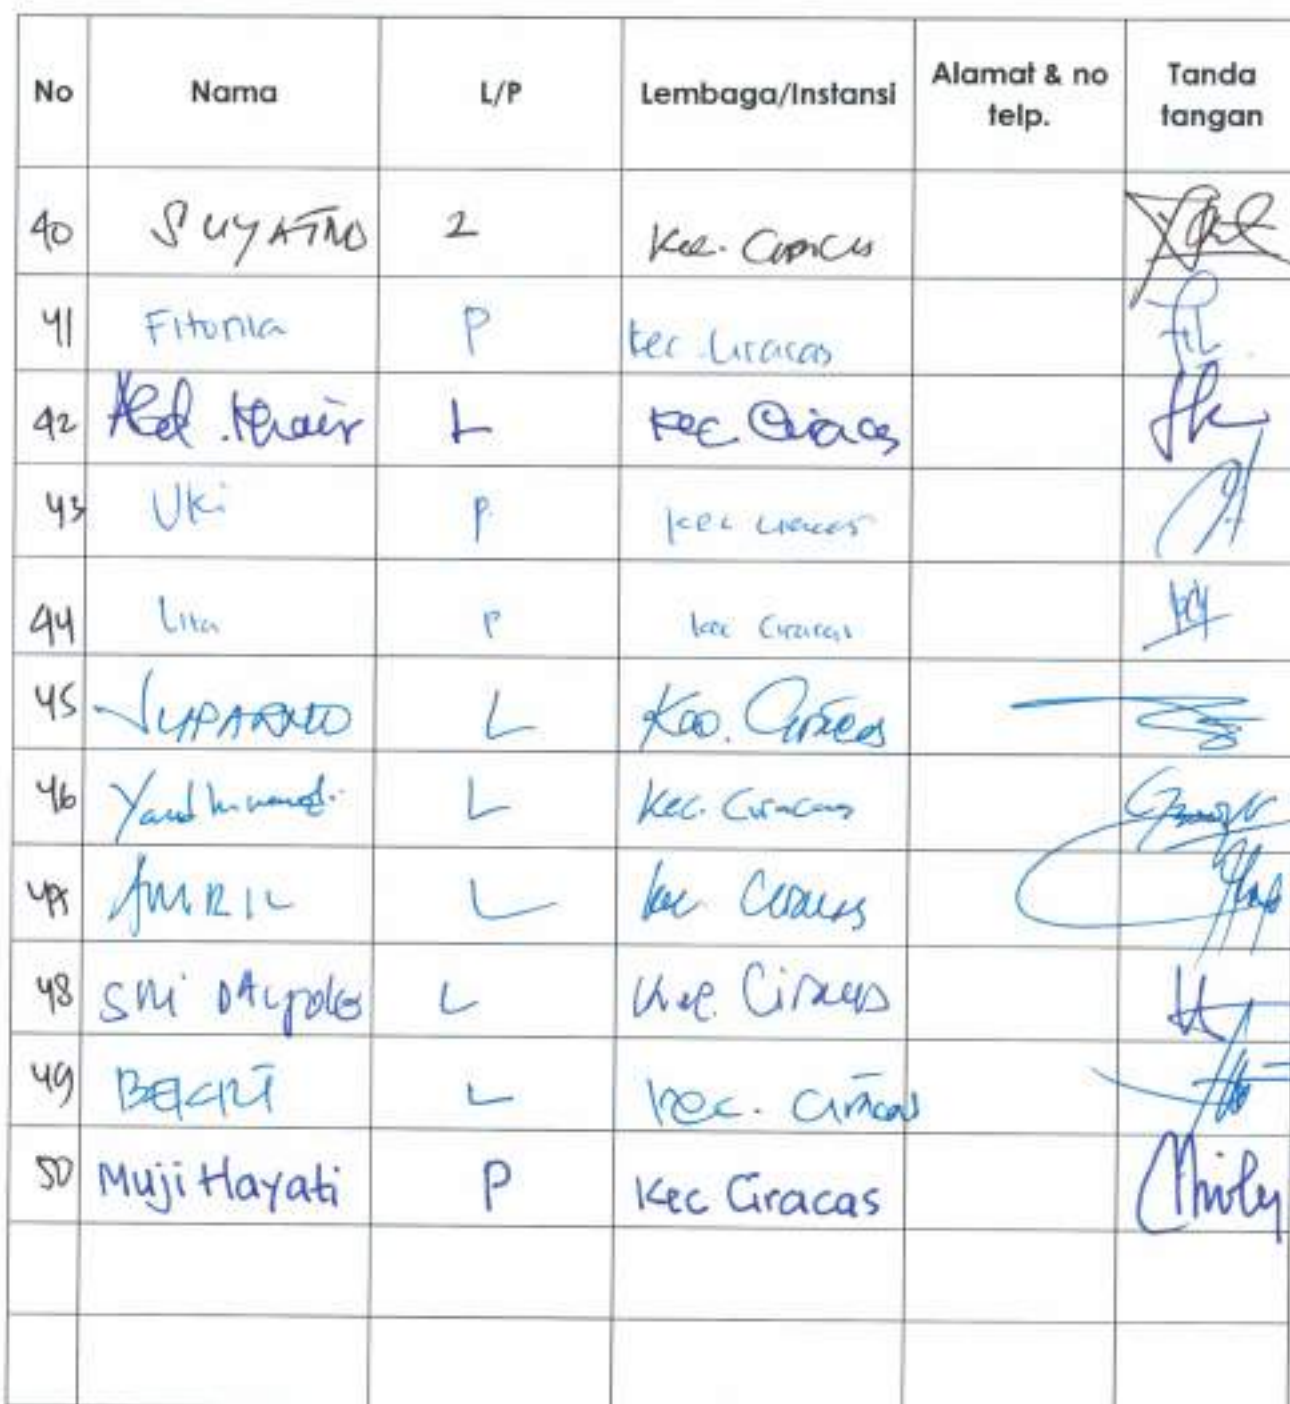 No Nama L/P Lembaga/Instansi Alamat & no telp. Tanda tangan
40 SUYATNO L Kec. Ciracas
41 Fitonia P kec Ciracas
42 Abd. Khair L Kec Ciracas
43 Uki P kec Ciracas
44 Lita P kec Ciracas
45 SUPARNO L Kec. Ciracas
46 L Kec. Ciracas
47 AMRIL L kec Ciracas
48 SRI L Kec. Ciracas
49 L kec. Ciracas
50 Muji Hayati P Kec Ciracas